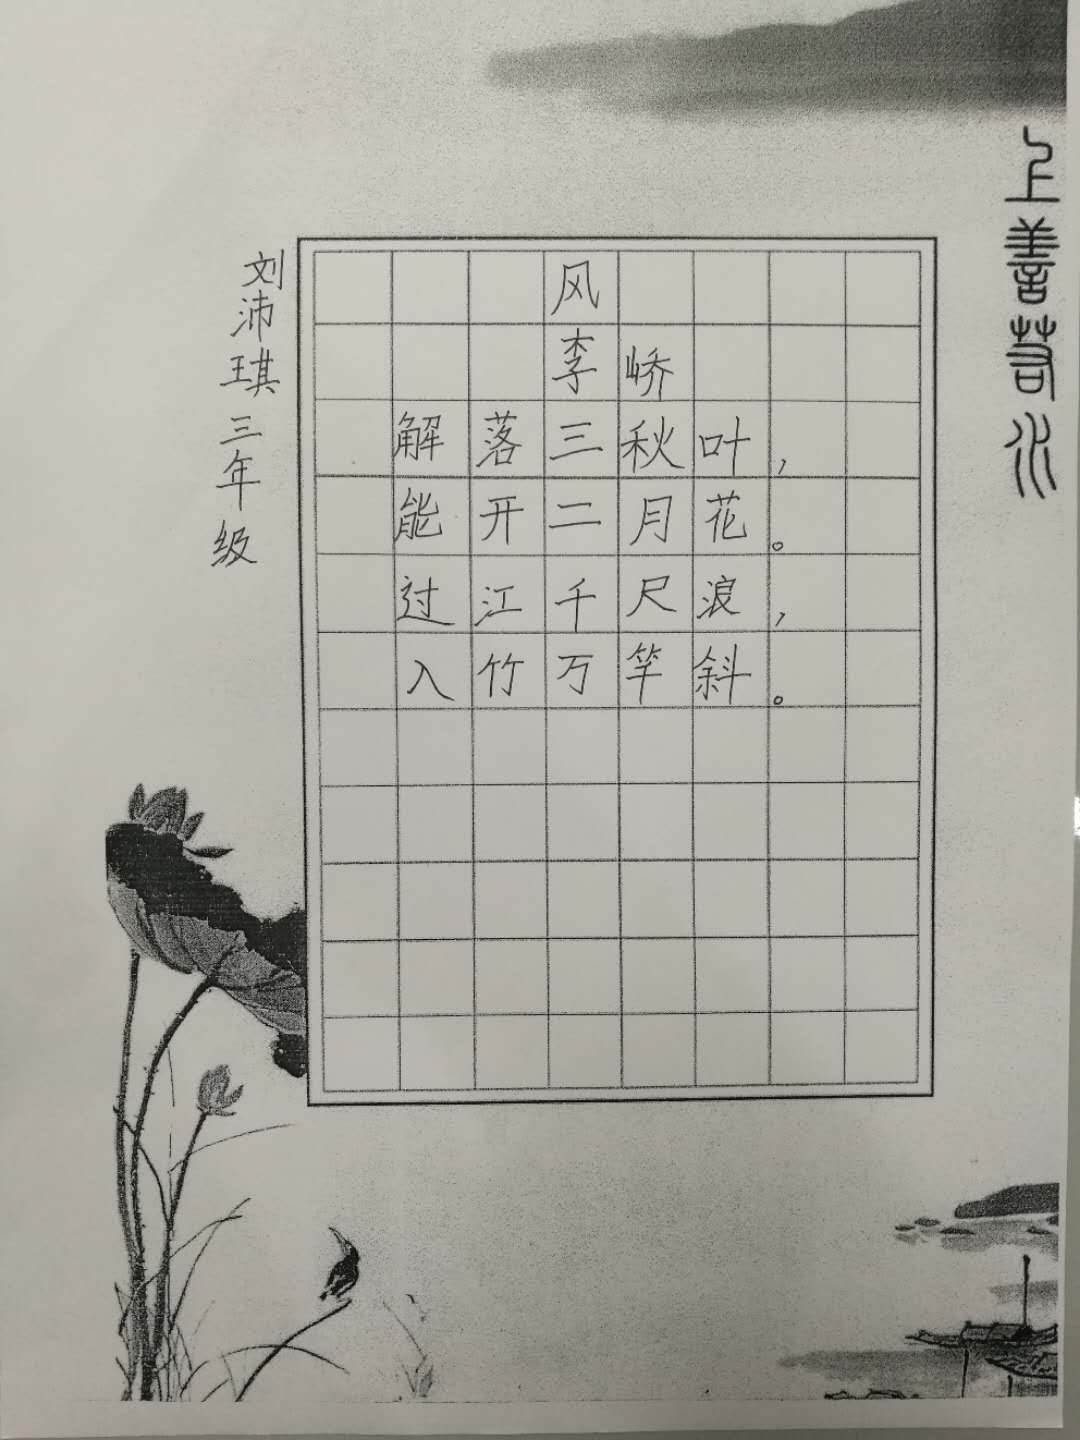 风
李峤
解落三秋叶，
能开二月花。
过江千尺浪，
入竹万竿斜。
刘沛琪三年级
上善若水